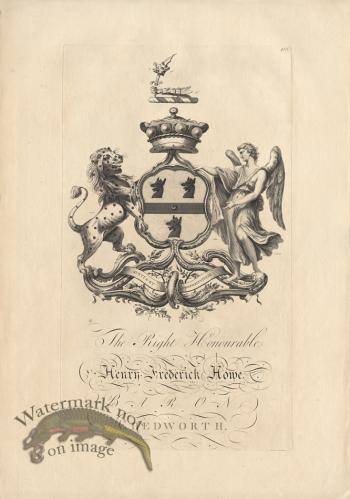 The Right Honourable
Henry Frederick Howe.
BARON
EDWORTH.
Watermark not
on image